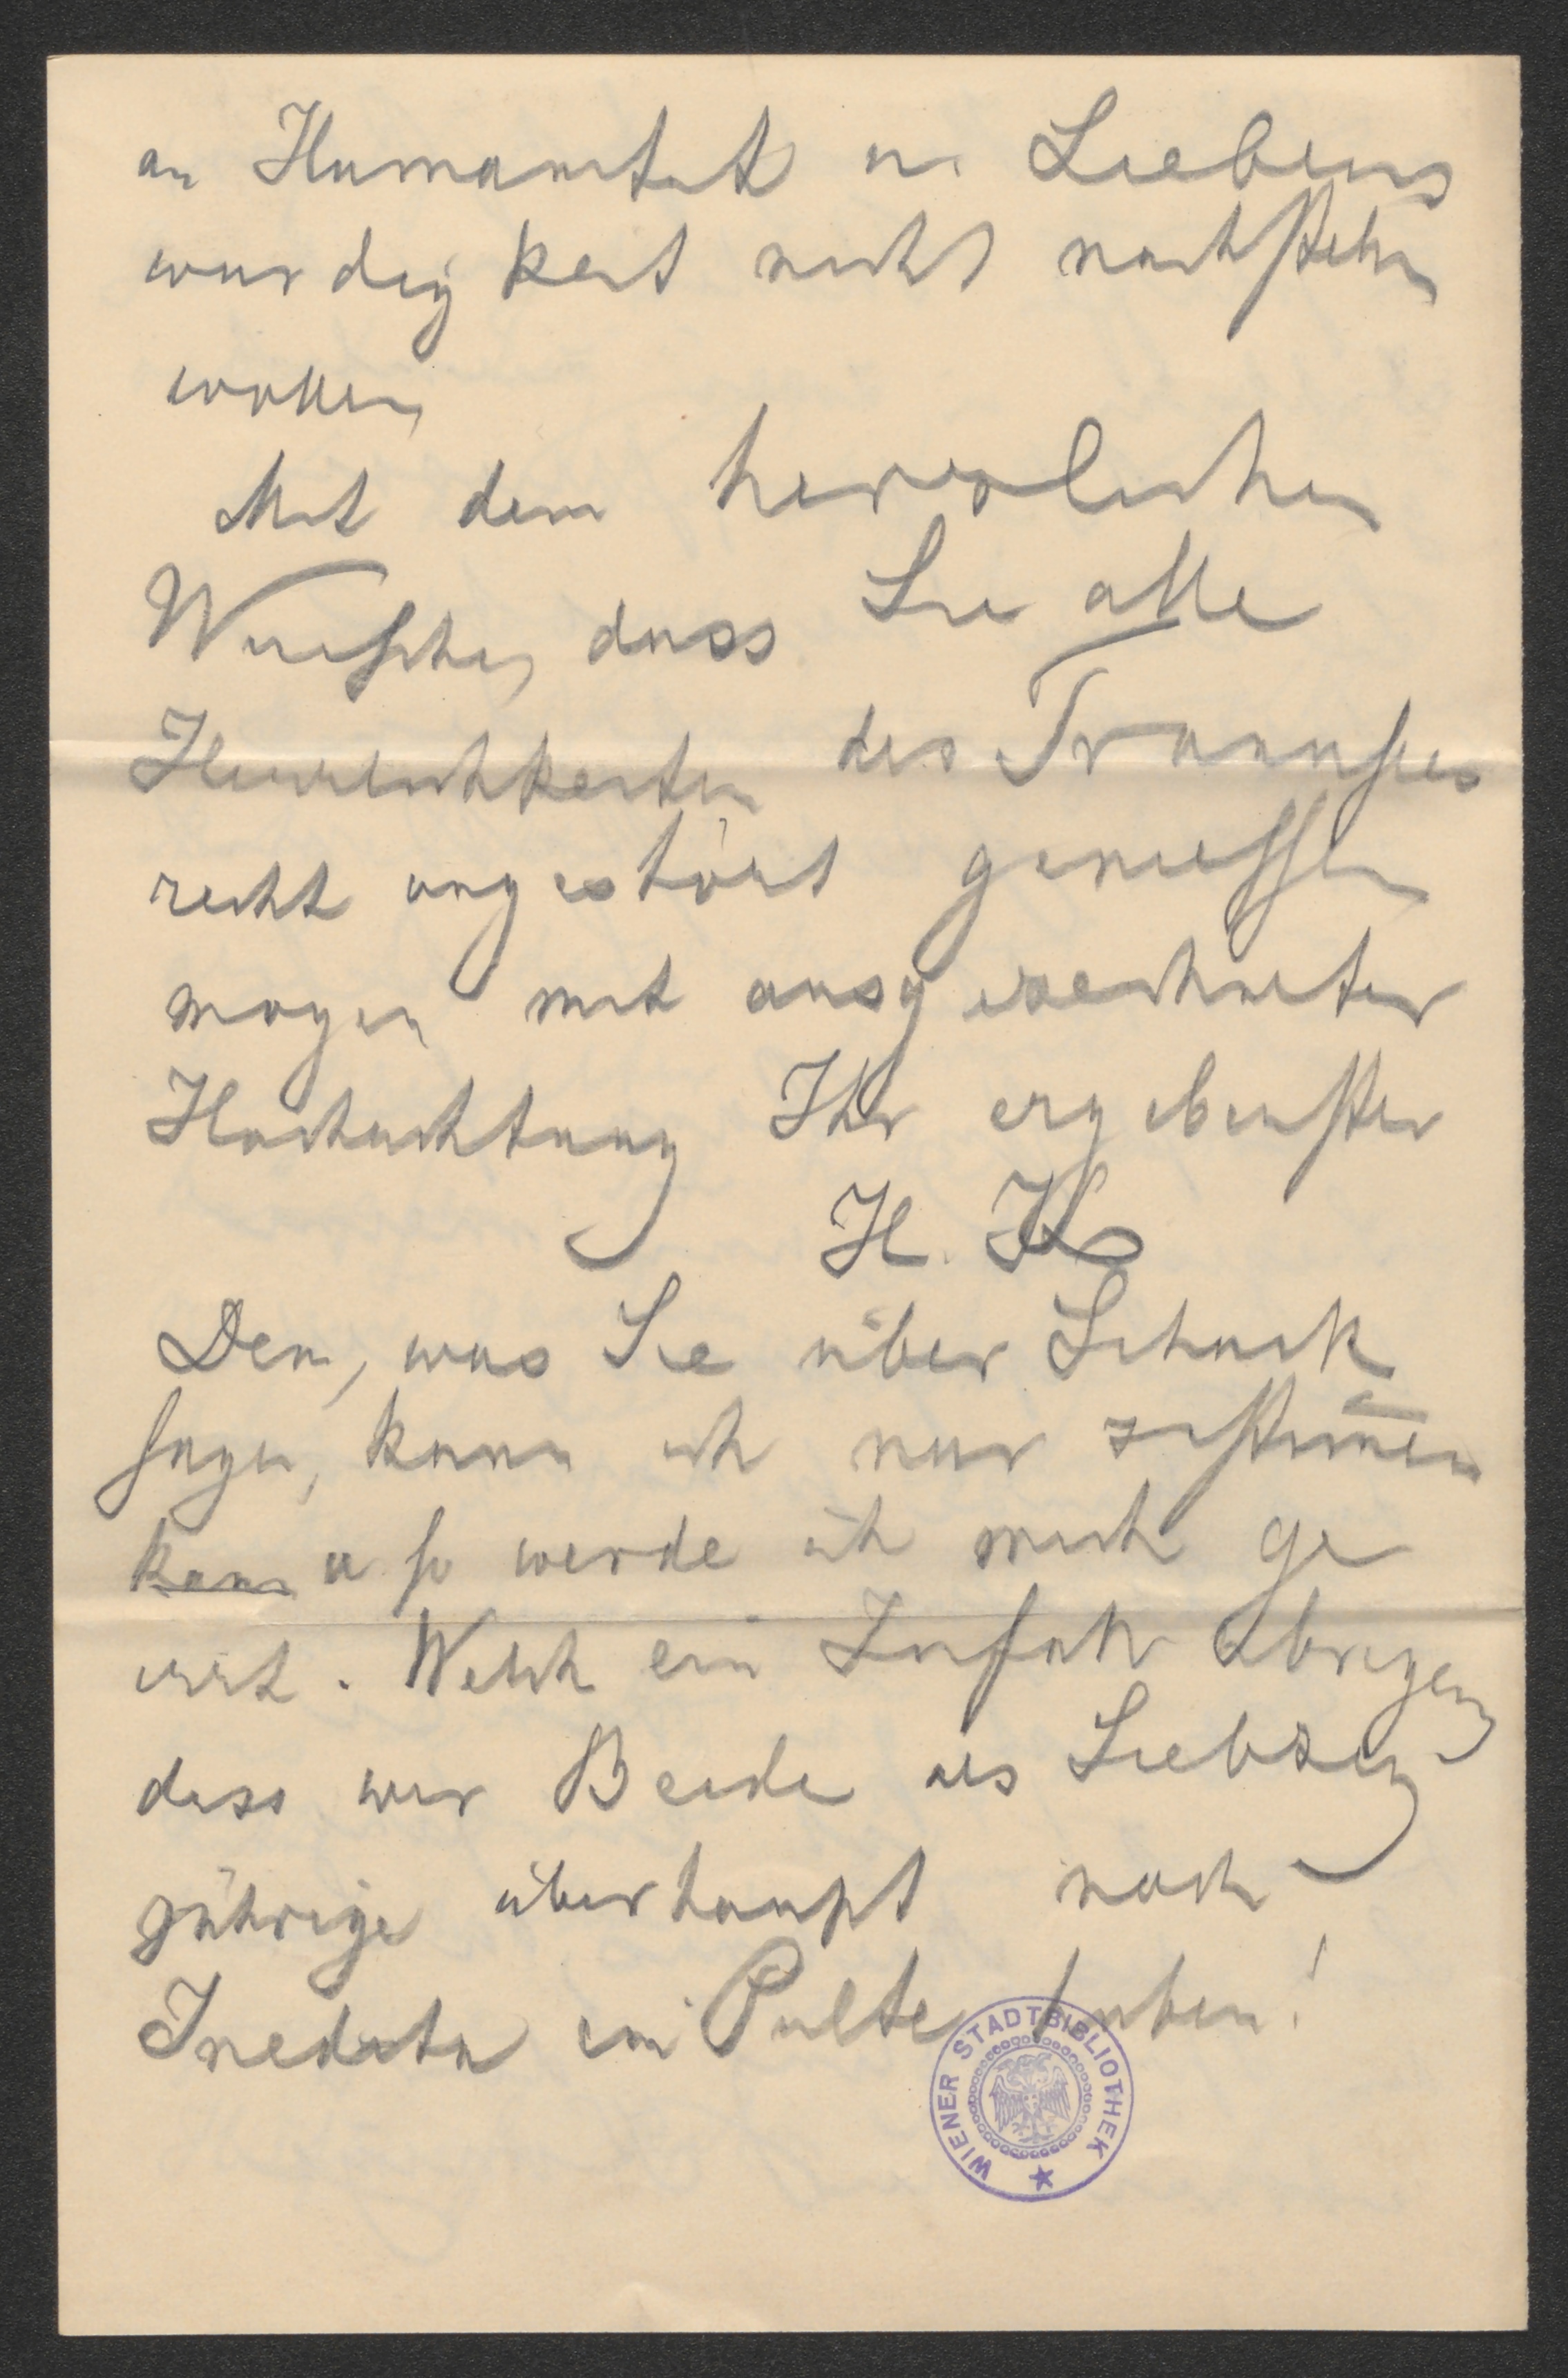 an Humanität u. Liebens
würdigkeit nicht nachstehn
wollen
Mit dem herzlichen
Wunsche, dass Sie alle
Herrlichkeiten des
recht ungestört geniessen
mögen mit ausgezeichneter
Hochachtung Ihr ergebenster
H. K
Dem, was Sie über Schack
sagen, kann ich nur zustim̅en
kann u so werde ich mich ge
irrt. Welch ein Zufall übrigens
dass wir Beide als Siebzig
jährige überhaupt noch
Inedita im Pulte haben!
WIENER STADTBIBLIOTHEK